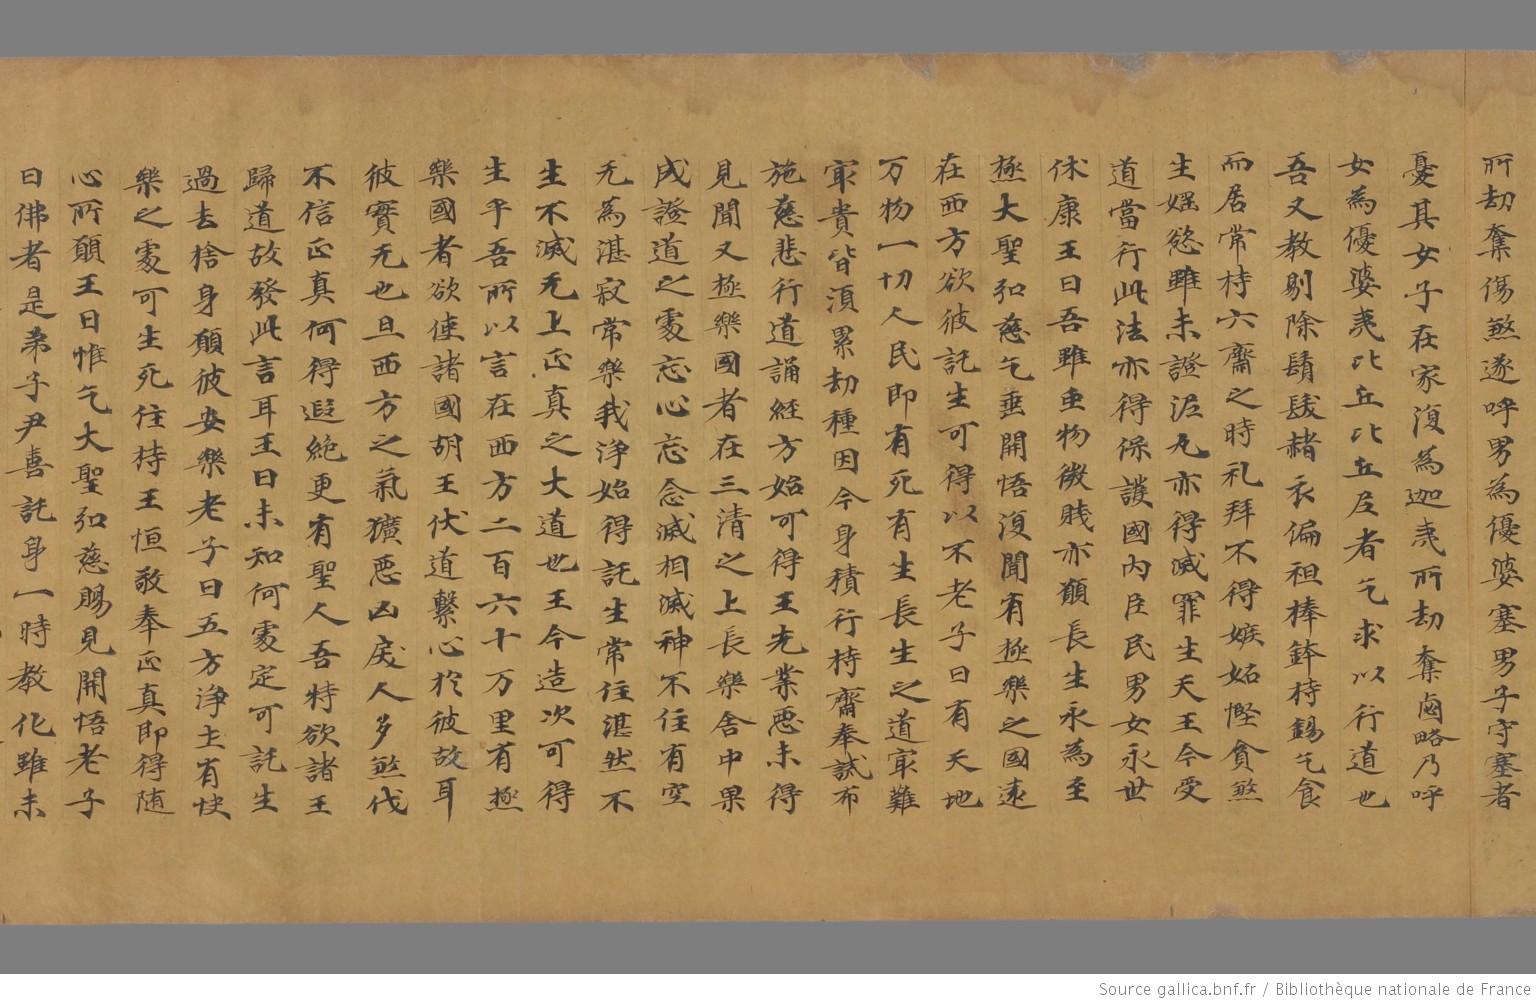 所劫奪傷煞遂呼男為優婆塞男子守塞者
憂其女子在家復為迦夷所劫奪鹵略乃呼
女為優婆夷比丘比丘尼者乞求以行道也
吾又教剔除鬚髮赭衣偏袒捧鉢持錫乞食
而居常持六齋之時礼拜不得嫉妬慳貪煞
生婬慾雖未證泥丸亦得滅罪生天王今受
道當行此法亦得保護國內臣民男女永世
休康王曰吾雖虫物微賤亦願長生永為至
極大聖弘慈乞垂開悟復聞有極樂之國遠
在西方欲彼託生可得以不老子曰有天地
万物一切人民即有死有生長生之道寂難
寂貴皆湏累劫種因今身積行持齋奉誡布
施慈悲行道誦經方始可得王先業惡未得
見聞又極樂國者在三清之上長樂舍中果
成證道之處忘心忘念滅相滅神不住有空
无為湛寂常樂我淨始得託生常住湛然不
生不滅无上正真之大道也王今造次可得
生乎吾所以言在西方二百六十万里有極
樂國者欲使諸國胡王伏道繫心扵彼故耳
彼實无也且西方之氣獷惡凶戾人多煞伐
不信正真何得遐絶更有聖人吾特欲諸王
歸道故發此言耳王曰未知何處定可託生
過去捨身願彼安樂老子曰五方淨土有快
樂之處可生死住持王恒敬奉正真即得随
心所願王曰惟乞大聖弘慈賜見開悟老子
曰佛者是弟子尹喜託身一時教化雖未
Source gallica.bnf.fr / Bibliothèque nationale de France